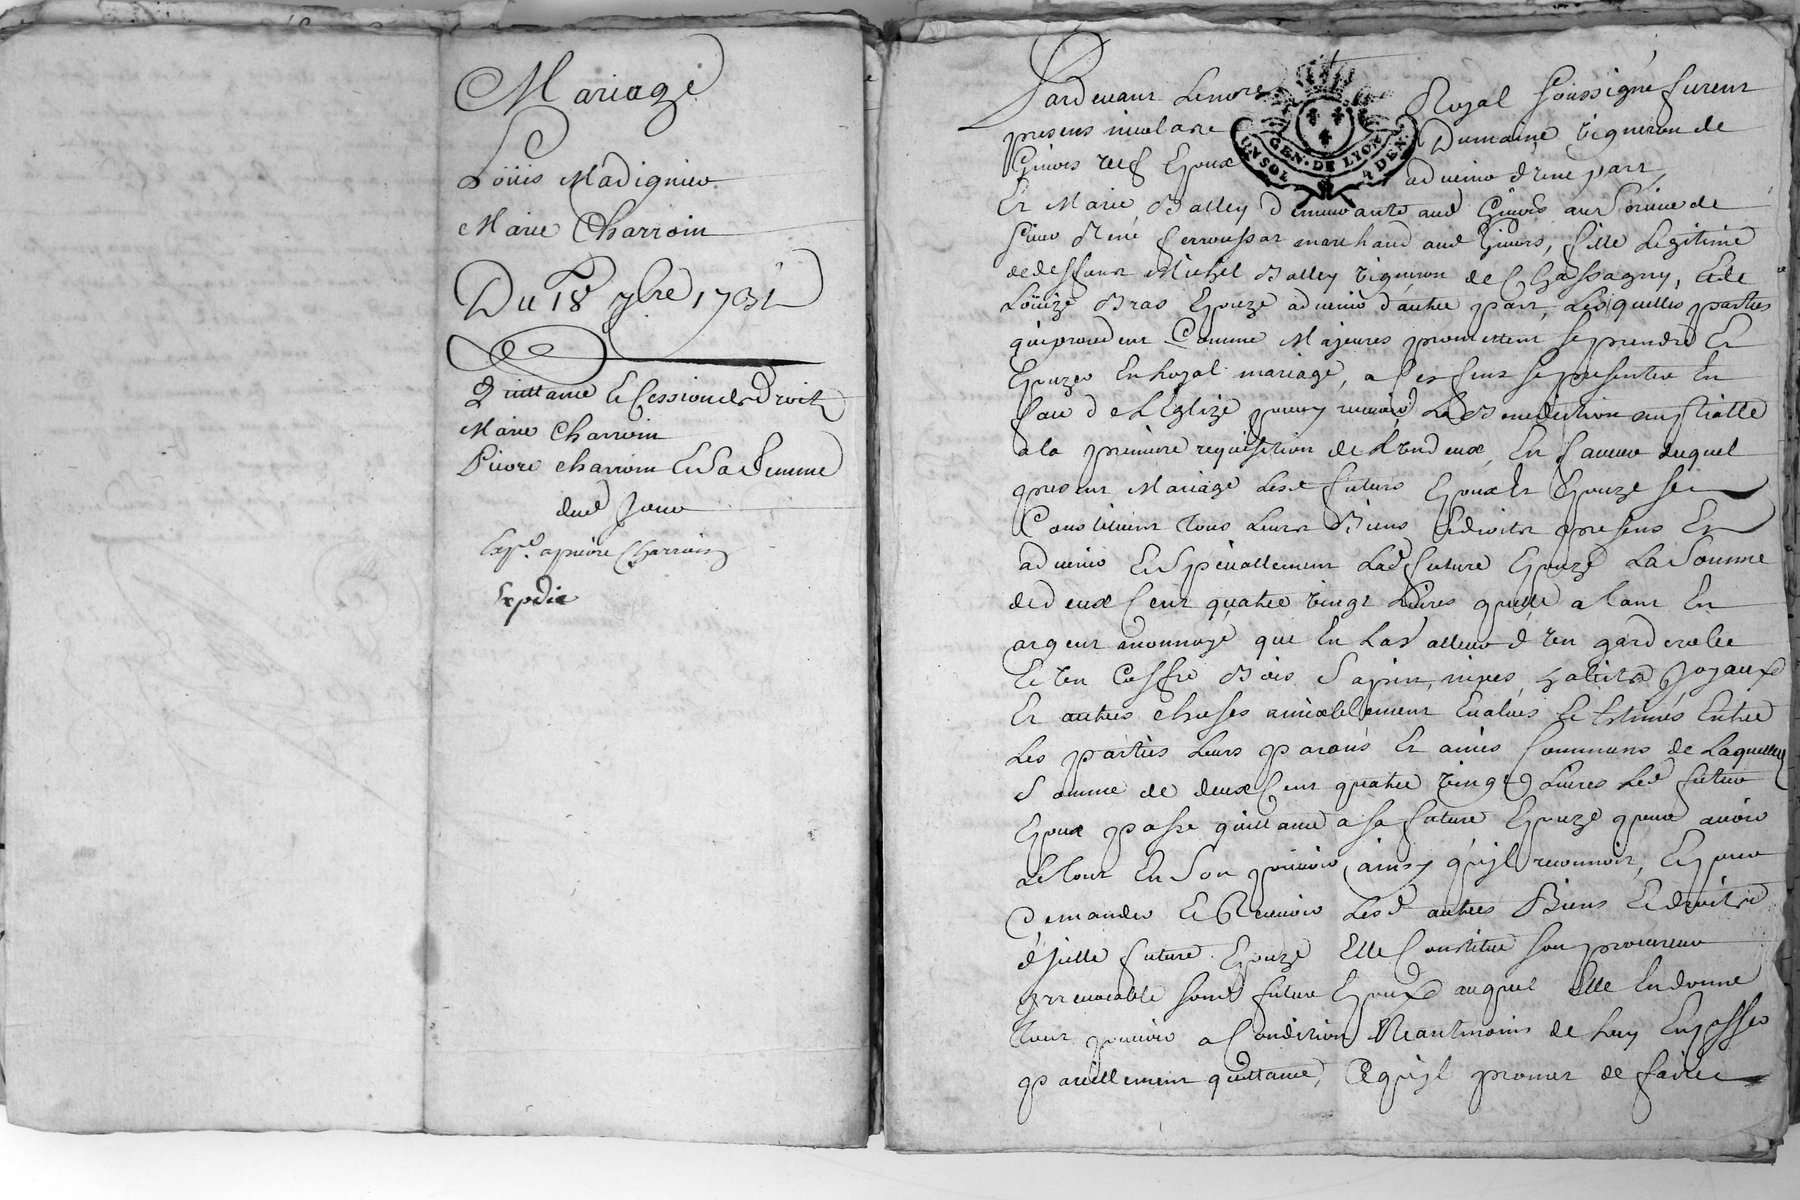 Mariage
Loüis Madignier
Marie Charroin
Du 18 7bre 1731
Quittance et Cession de droitz
Marie Charroin
Pierre Charroin et sa femme
dud Jour
Exp.d a pierre Charroin
Expdie
Pardevant Lenore Royal soussigné furent
presens nicolas Dumaine vigneron de
Givors veuf Epoux advenir d'une part,
Et Marie Balley demeurante aud Givors au service de
sieur René ferroussat marchand aud Givors, fille Legitime
de deffunt Michel Balley vigneron de Chassagny, et de
Loüize Bras Epouze advenir d'autre part, Lesquelles parties
qui procedent Comme Majeures promettent se prendre Et
Epouzer En Loyal mariage, a Ces fins se presenter En
face de L'Eglize pour y recevoir La Benediction nuptialle
a la premiere requisition de L'un d'eux, En faveur duquel
present Mariage Lesd futurs Epoux Et Epouze se
Constituent tous Leurs Biens et droits presens Et
advenir Et Specialement Lad future Epouze La Somme
de deux Cent quatre vingt Livres quelle a tant En
argent monnoyé que En La valleur d'un garderobe
Et un Coffre Bois Sapin, nipes, habits Joyaux
Et autres choses amiablement Evalués Et Estimés Entre
Les parties Leurs parans Et amis Communs de Laquelle
Somme de deux Cent quatre vingt Livres Led futur
Epoux passe quittance a sa future Epouze pour avoir
Le tout En Son pouvoir ainsy qu'jl reconnoit, Et pour
Demander Et Recevoir Lesd autres Biens Et droits
d'jcelle future Epouze Elle Constitue son procureur
jrrevocable sond futur Epoux auquel Elle En donne
tout pouvoir a Condition Neantmoins de Luy En passer
pareillement quittance, Ce qu'jl promet de faire
GEN. DE LYON
UN SOL